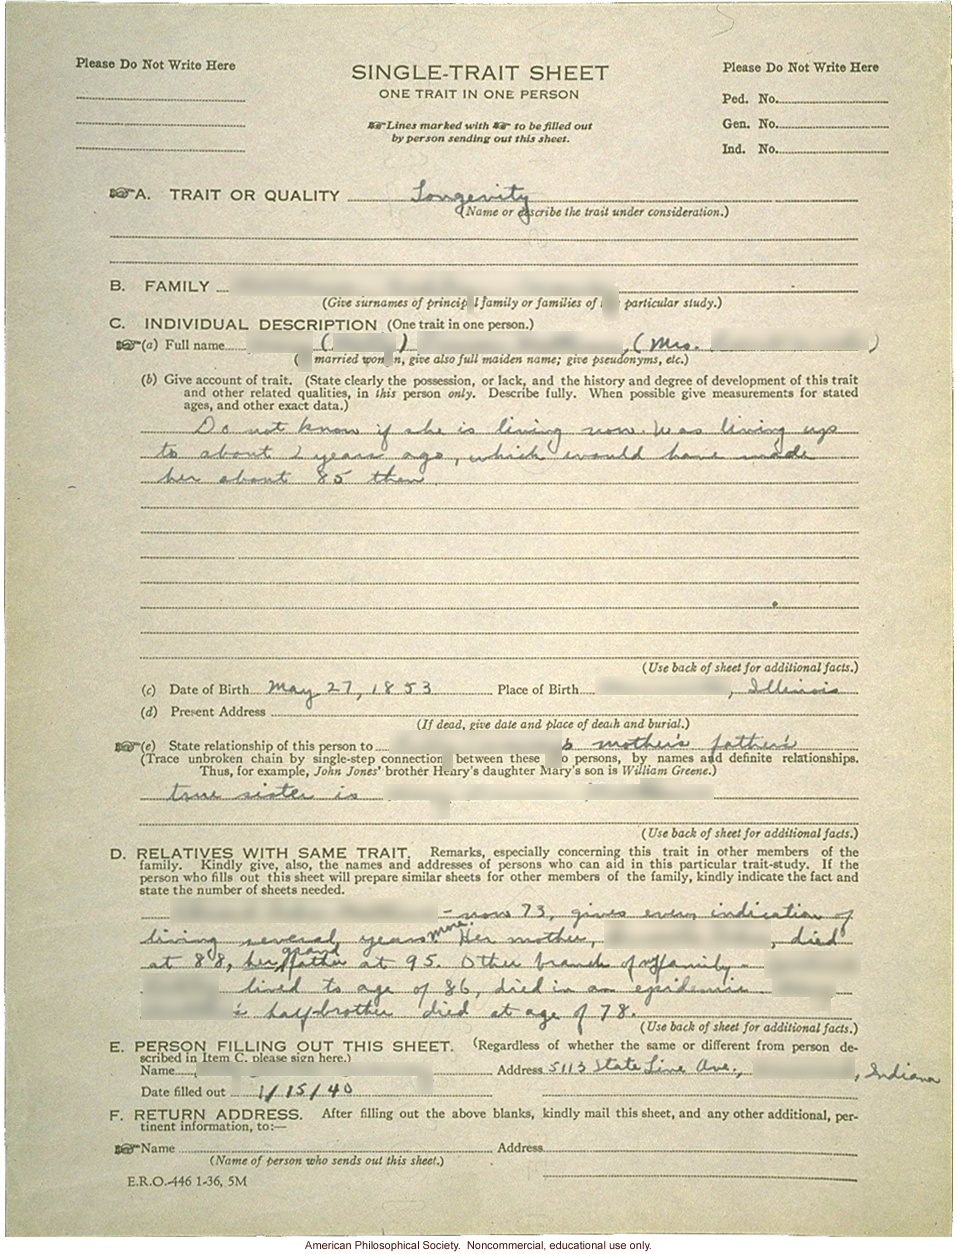 Please Do Not Write Here
SINGLE-TRAIT SHEET
ONE TRAIT IN ONE PERSON
Lines marked with to be filled out
by person sending out this sheet.
Please Do Not Write Here
Ped. No.
Gen. No.
Ind. No.
A. TRAIT OR QUALITY Longevity
(Name or describe the trait under consideration.)
B. FAMILY
(Give surnames of principal family or families of particular study.)
C. INDIVIDUAL DESCRIPTION (One trait in one person.)
(a) Full name ( ) , (Mrs. )
( married women, give also full maiden name; give pseudonyms, etc.)
(b) Give account of trait. (State clearly the possession, or lack, and the history and degree of development of this trait
and other related qualities, in this person only. Describe fully. When possible give measurements for stated
ages, and other exact data.)
Do not know if she is living now. Was living up
to about 2 years ago, which would have made
her about 85 then
(Use back of sheet for additional facts.)
(c) Date of Birth May 27, 1853 Place of Birth , Illinois
(d) Present Address
(If dead, give date and place of death and burial.)
(e) State relationship of this person to 's mother's father's
(Trace unbroken chain by single-step connection between these o persons, by names and definite relationships.
Thus, for example, John Jones' brother Henry's daughter Mary's son is William Greene.)
true sister is
(Use back of sheet for additional facts.)
D. RELATIVES WITH SAME TRAIT. Remarks, especially concerning this trait in other members of the
family. Kindly give, also, the names and addresses of persons who can aid in this particular trait-study. If the
person who fills out this sheet will prepare similar sheets for other members of the family, kindly indicate the fact and
state the number of sheets needed.
- now 73, gives every indication of
living several years more. Her mother, , died
at 88, her grandfather at 95. Other branch of family -
lived to age of 86, died in an epidemic
's half-brother died at age of 78.
(Use back of sheet for additional facts.)
E. PERSON FILLING OUT THIS SHEET. (Regardless of whether the same or different from person de-
scribed in Item C. please sign here.)
Name Address 5113 State Line Ave., , Indiana
Date filled out 1/15/40
F. RETURN ADDRESS. After filling out the above blanks, kindly mail this sheet, and any other additional, per-
tinent information, to:—
Name Address
(Name of person who sends out this sheet.)
E.R.O.-446 1-36, 5M
American Philosophical Society. Noncommercial, educational use only.